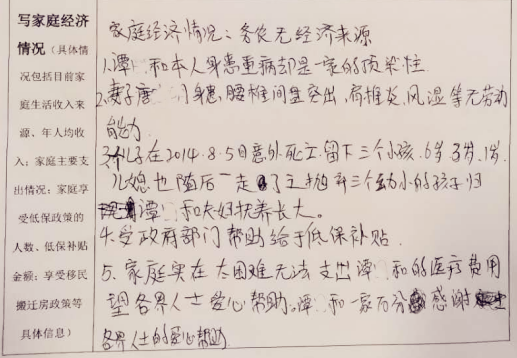 写家庭经济
情况（具体情
况包括目前家
庭生活收入来
源、年人均收
入；家庭主要支
出情况；家庭享
受低保政策的
人数、低保补贴
金额；享受移民
搬迁房政策等
具体信息）
家庭经济情况：务农无经济来源
1.谭 和本人身患重病却是一家的顶梁柱
2.妻子唐 身患，腰椎间盘突出，肩椎炎，风湿等无劳动
能力
3.儿子在2014.8.5日意外死亡留下三个小孩，6岁3岁，1岁，
儿媳也随后一走了之抛弃三个幼小的孩子归
谭 和夫妇扶养长大。
4.受政府部门帮助给于低保补贴
5、家庭实在太困难无法支出谭 和的医疗费用
望各界人士爱心帮助。谭 和一家万分感谢
各界人士的爱心帮助